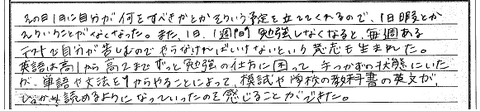 その日1日に自分が何をすべきかとかそういう予定を立ててくれるので、1日暇とか
そういうことがなくなった。また、1日、1週間勉強しなくなると、毎週ある
テストで自分が苦しむのでやらなければいけないという発想も生まれた。
英語は高1から高2までずっと勉強の仕方に困って、手つかずの状態にいた
が、単語や文法を1からやることによって、模試や学校の教科書の英文が
しなかが読めるようになっていったのを感じることができた。